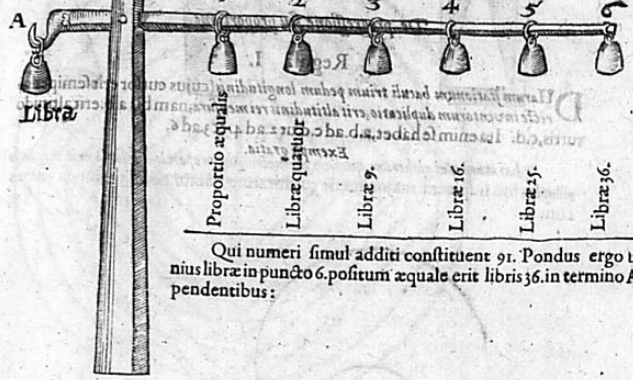 A
2 3 4 5 6
Libra
Proportio æqualis
Libræ quatuor
Libræ 9.
Libræ 16.
Libræ 25.
Libræ 36.
Qui numeri ſimul additi conſtituent 91. Pondus ergo
nius libræ in puncto 6. poſitum æquale erit libris 36. in termino A
pendentibus: